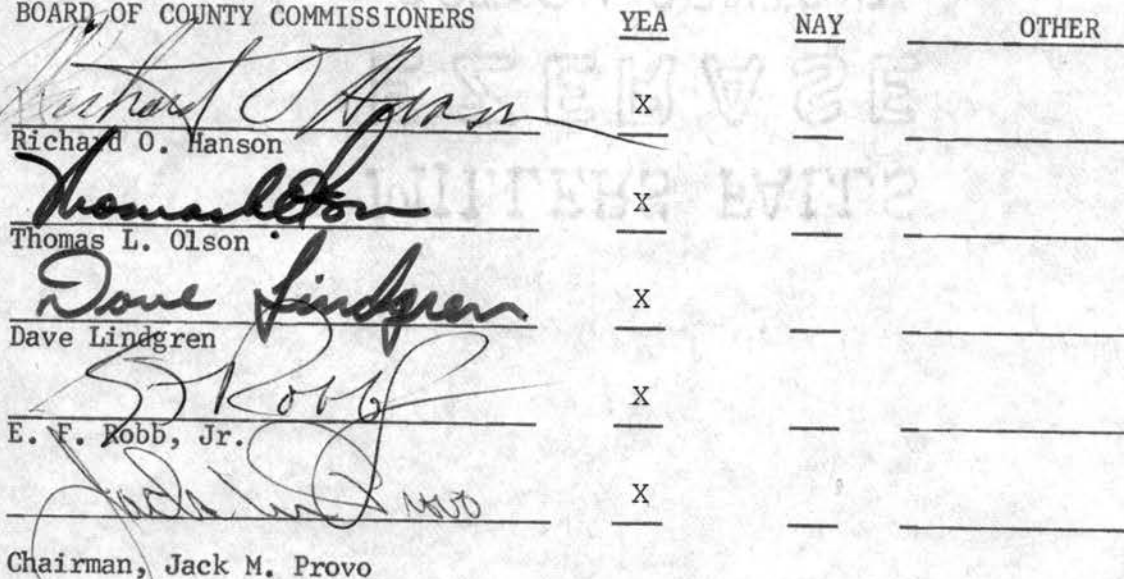 BOARD OF COUNTY COMMISSIONERS YEA NAY OTHER
Richard O Hanson X
Richard O. Hanson
Thomas L Olson X
Thomas L. Olson
Dave Lindgren X
Dave Lindgren
E F Robb Jr X
E. F. Robb, Jr.
Jack M Provo X
Chairman, Jack M. Provo
EZERASE
MILLERS FALLS